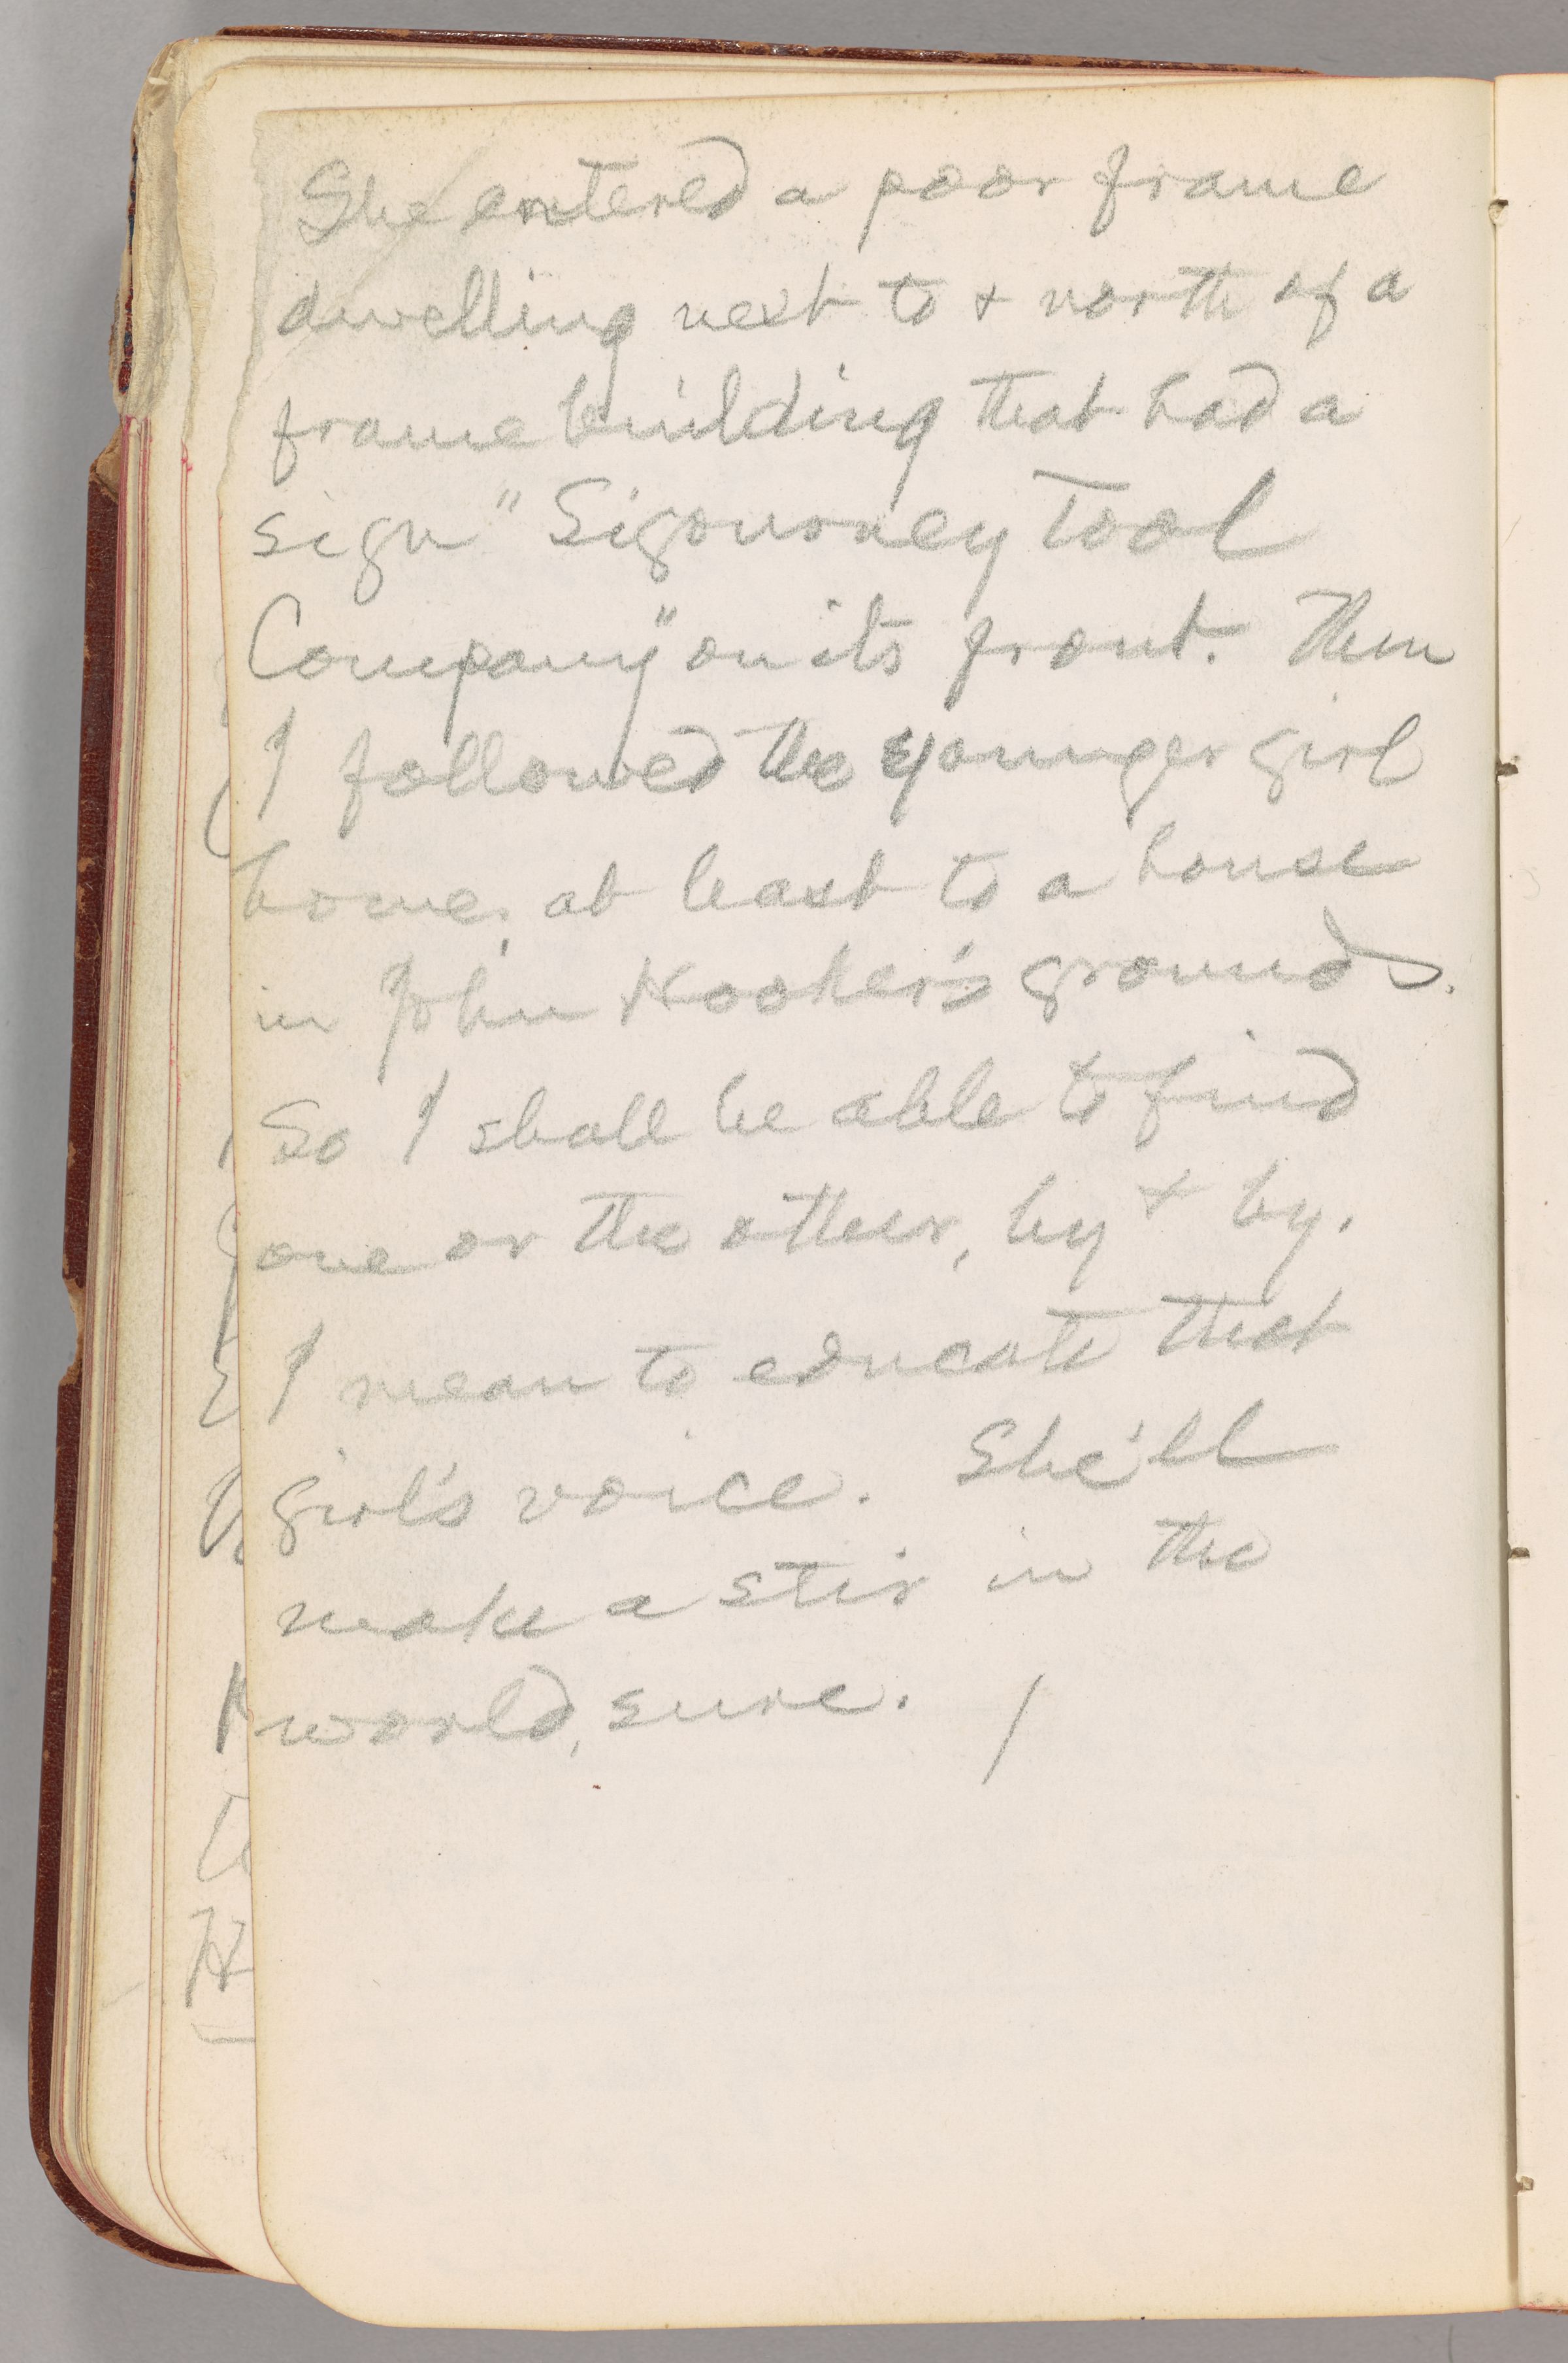 She entered a poor frame
dwelling next to & north of a
frame building that had a
sign "Sigourney Tool
Company" on its front. Then
I followed the younger girl
home, at least to a house
in John Hooker's grounds.
So I shall be able to find
one or the other, by & by.
I mean to educate that
girl's voice. She'll
make a stir in the
world, sure. /